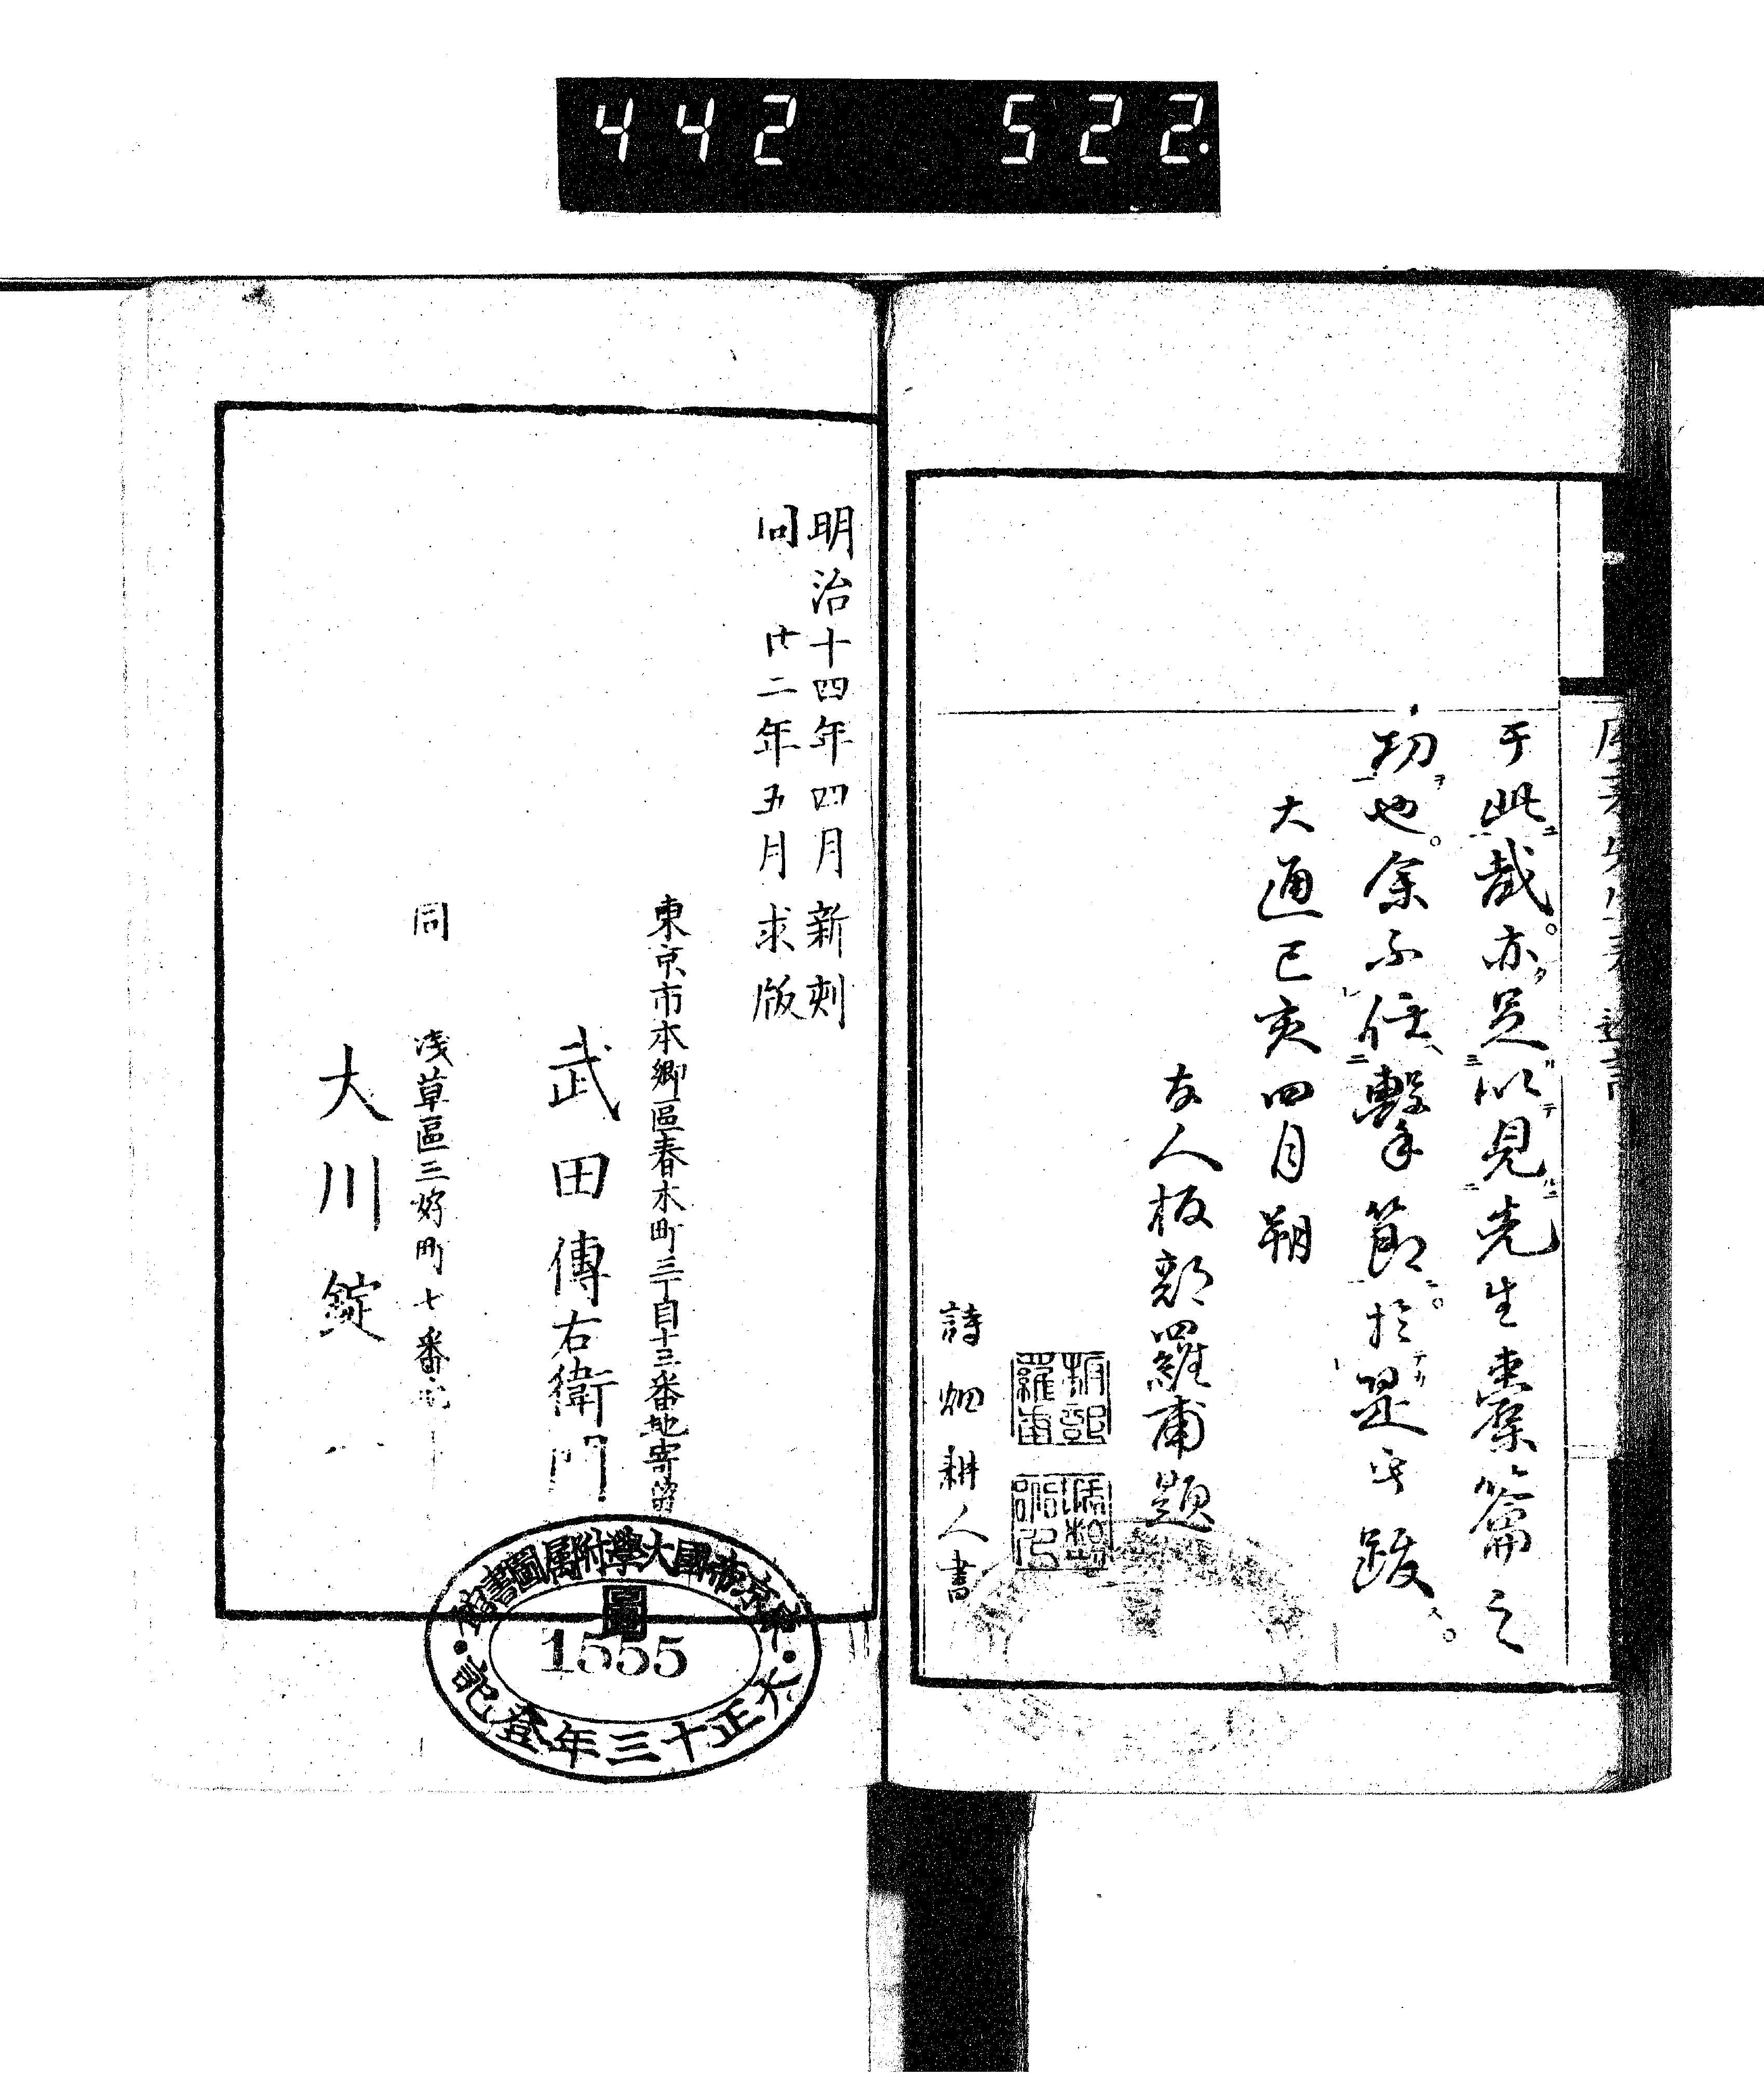 442 522.
于此哉。亦足以見先生橐籥之
功也。余不任擊節。於是乎跋。
大通己亥四月朔
友人板部羅甫題
詩畑耕人書
明治十四年四月新刻
同 廿二年五月求版
東京市本鄉區春木町三丁目十三番地寄留
武田傳右衛門
同 淺草區三好町七番
大川錠
東京帝國大學附屬圖書館
圖
1555
大正十三年登記